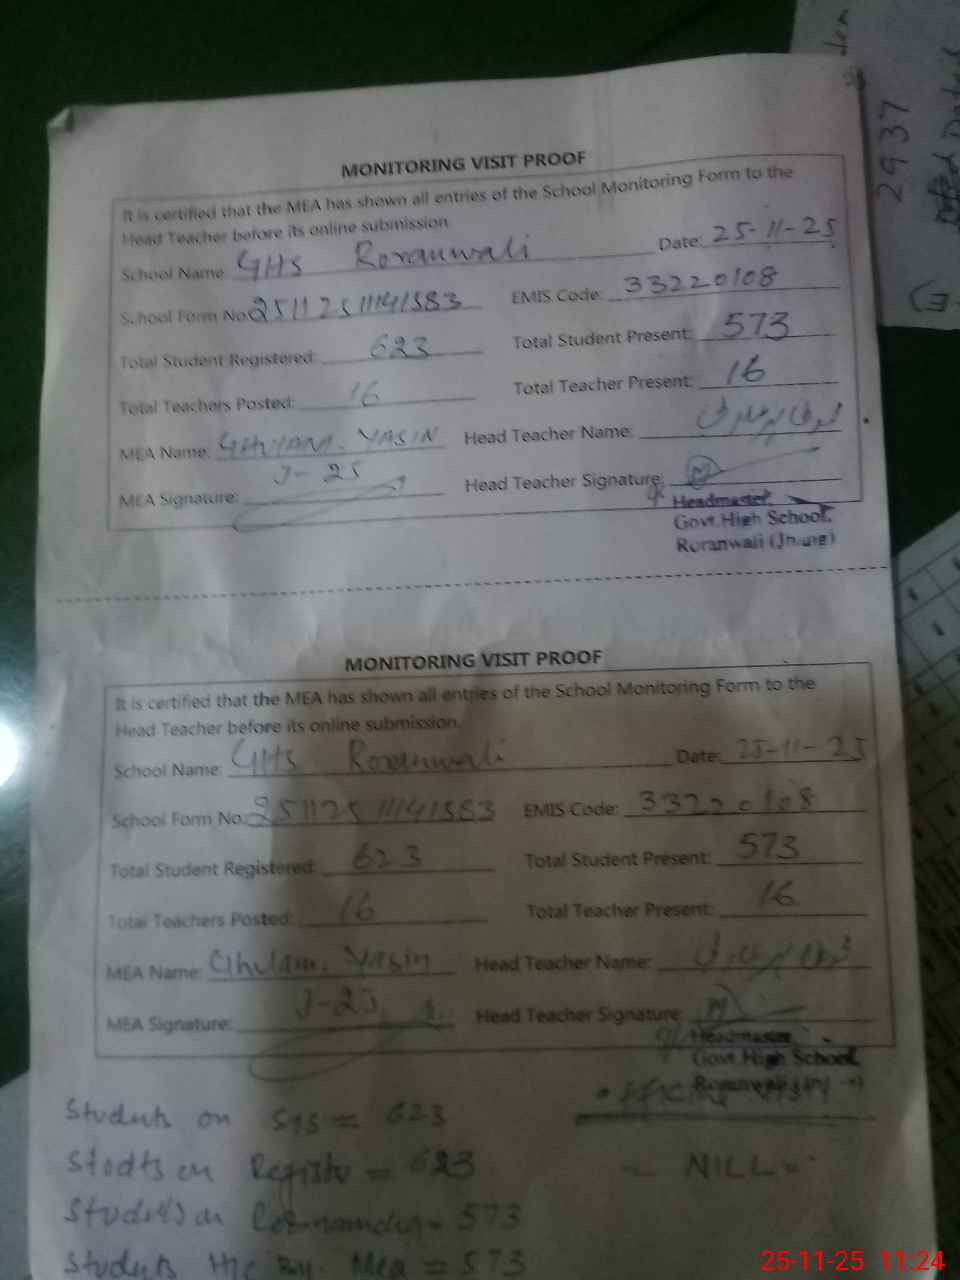 MONITORING VISIT PROOF
It is certified that the MEA has shown all entries of the School Monitoring Form to the
Head Teacher before its online submission.
School Name: GHS Roranwali Date: 25-11-25
School Form No. 251125111141583 EMIS Code: 33220108
Total Student Registered: 623 Total Student Present: 573
Total Teachers Posted: 16 Total Teacher Present: 16
MEA Name: GHULAM. YASIN Head Teacher Name:
J-25
MEA Signature: Head Teacher Signature:
Headmaster,
Govt.High School,
Roranwali (Jhang)
MONITORING VISIT PROOF
It is certified that the MEA has shown all entries of the School Monitoring Form to the
Head Teacher before its online submission.
School Name: GHS Roranwali Date: 25-11-25
School Form No. 251125111141583 EMIS Code: 33220108
Total Student Registered: 623 Total Student Present: 573
Total Teachers Posted: 16 Total Teacher Present: 16
MEA Name: Ghulam. Yasin Head Teacher Name:
J-25
MEA Signature: Head Teacher Signature:
Headmaster
Govt.High School,
Students on SIS = 623
= 623
NILL =
= 573
Mea = 573
2937
25-11-25 11:24